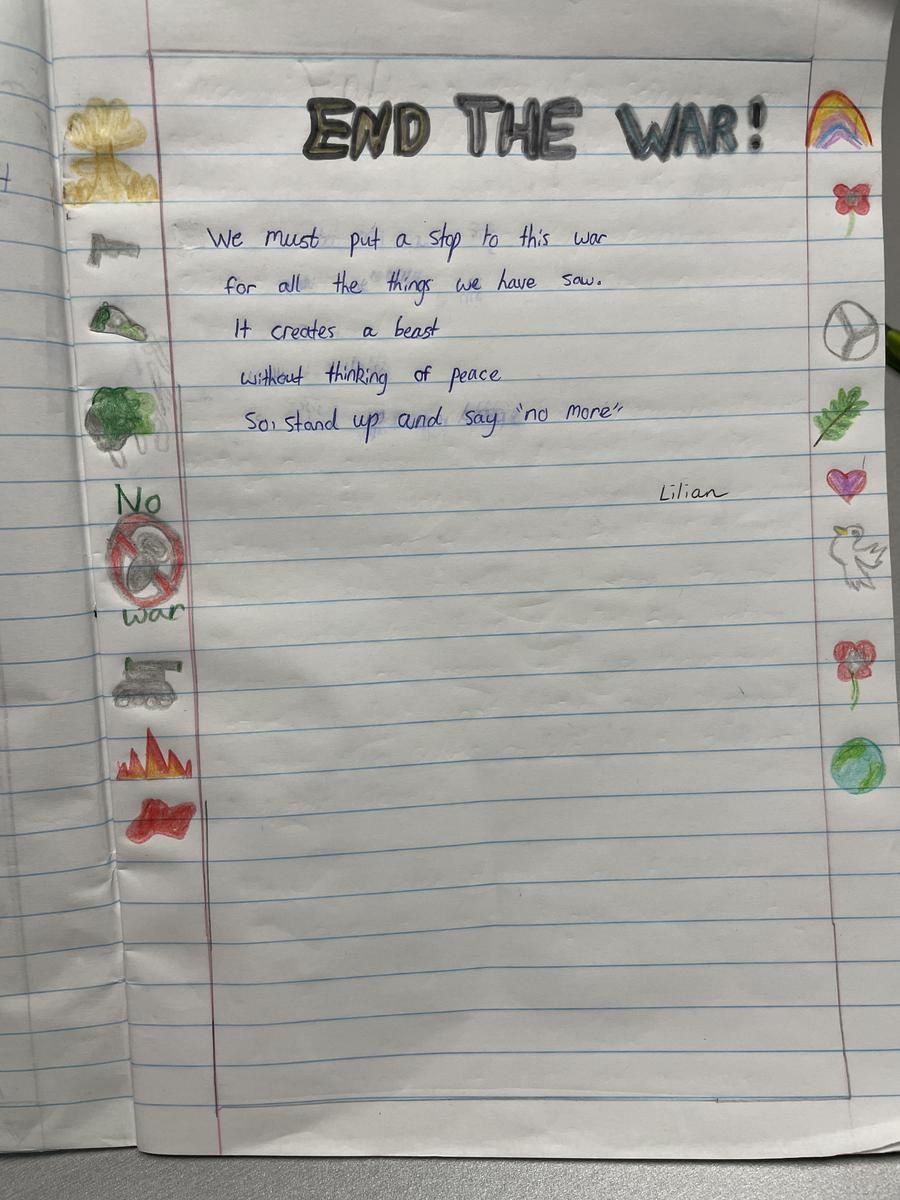 END THE WAR!
We must put a stop to this war
for all the things we have saw.
It creates a beast
without thinking of peace
So, stand up and say "no more"
Lilian
No
war